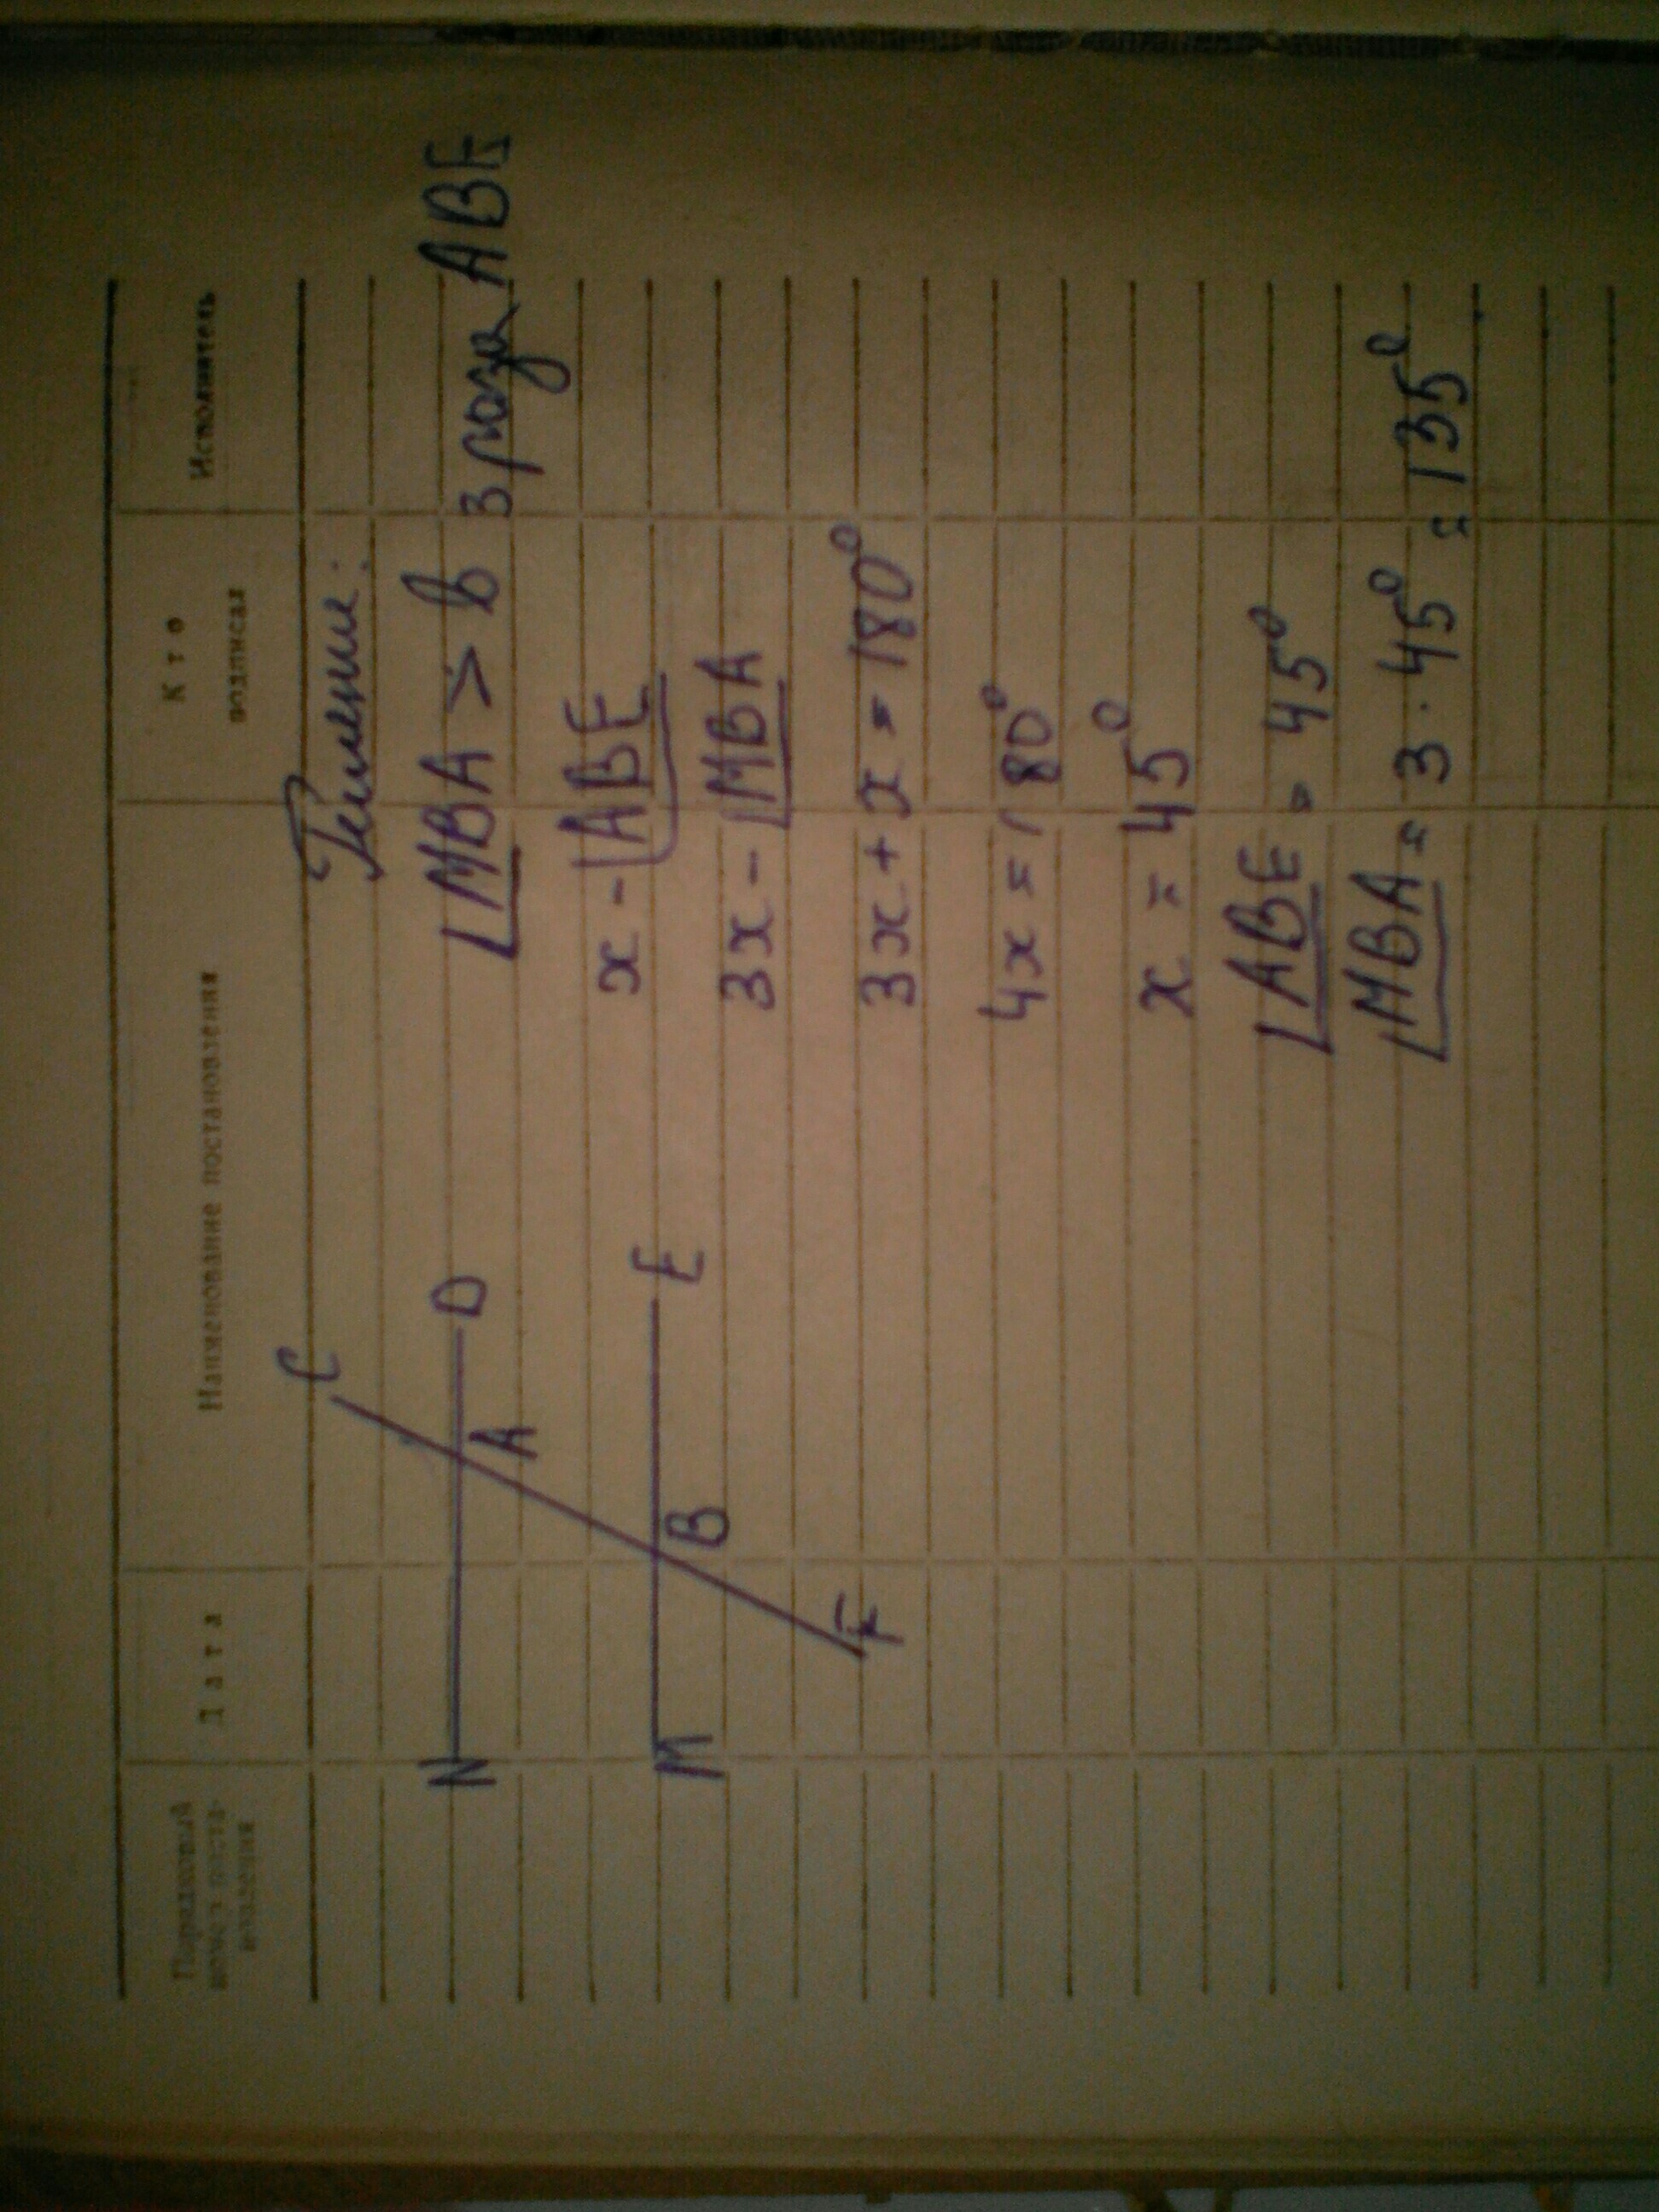 Порядковый
номер поста-
новления
Дата
Наименование постановления
Кто
подписал
Исполнитель
C
N
D
A
M
B
E
F
Решение:
∠MBA > в 3 раза ABE
x - ∠ABE
3x - ∠MBA
3x + x = 180°
4x = 180°
x = 45°
∠ABE = 45°
∠MBA = 3 · 45° = 135°